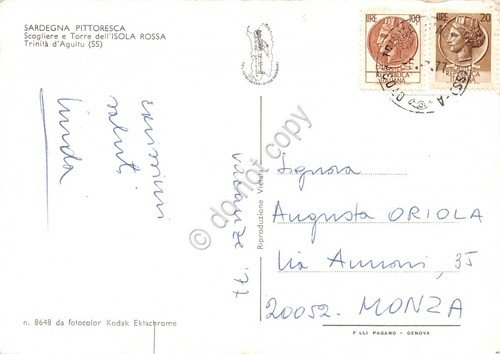 SARDEGNA PITTORESCA
Scogliere e Torre dell'ISOLA ROSSA
Trinità d'Agultu (SS)
LIRE 100
REPUBBLICA
ITALIANA
LIRE 20
REPUBBLICA
ITALIANA
carissimi
saluti
Linda
vacanze '77
Signora
Augusta ORIOLA
Via Annoni, 35
20052. MONZA
Riproduzione Vietata
n. 8648 da fotocolor Kodak Ektachrome
F.LLI PAGANO - GENOVA
do not copy